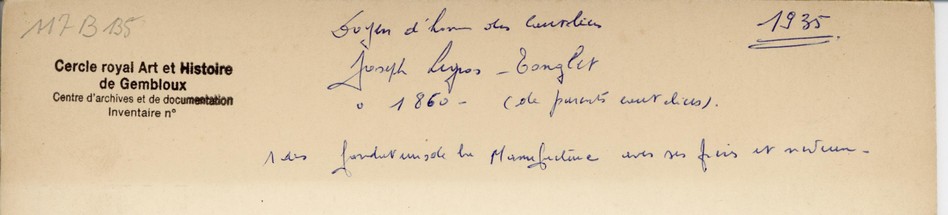 117 B 135
Doyen d'honneur des couteliers
1935
Cercle royal Art et Histoire
de Gembloux
Centre d'archives et de documentation
Inventaire n°
Joseph - Tonglet
° 1860 - (de parents couteliers).
1 des fondateurs de la Manufacture avec ses frères et